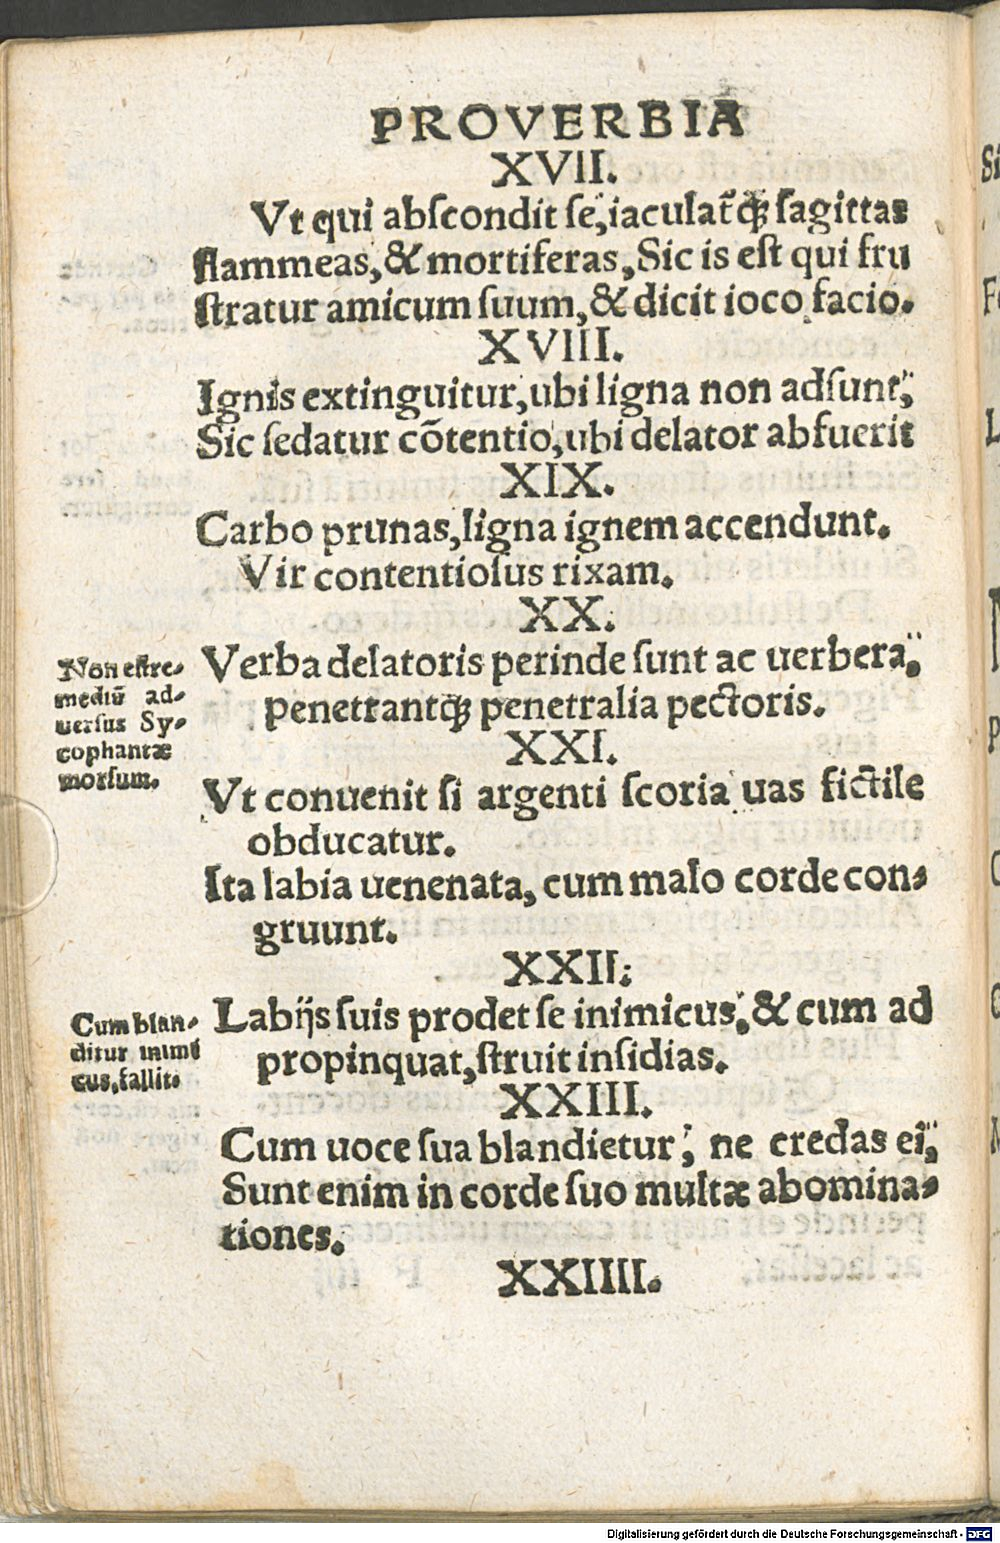 PROVERBIA
XVII.
Vt qui abſcondit ſe, iaculat̃ꝗ; ſagittas
flammeas, & mortiferas, Sic is eſt qui fru
ſtratur amicum ſuum, & dicit ioco facio.
XVIII.
Ignis extinguitur, ubi ligna non adſunt,
Sic ſedatur cõtentio, ubi delator abfuerit
XIX.
Carbo prunas, ligna ignem accendunt.
Vir contentioſus rixam.
XX.
Verba delatoris perinde ſunt ac uerbera,
penetrantꝗ; penetralia pectoris.
Non eſt re-
mediũ ad-
uerſus Sy-
cophantæ
morſum.
XXI.
Vt conuenit ſi argenti ſcoria uas fictile
obducatur.
Ita labia uenenata, cum malo corde con-
gruunt.
XXII.
Labijs ſuis prodet ſe inimicus, & cum ad
propinquat, ſtruit inſidias.
Cum blan-
ditur inimi
cus, fallit.
XXIII.
Cum uoce ſua blandietur, ne credas ei,
Sunt enim in corde ſuo multæ abomina-
tiones.
XXIIII.
Digitalisierung gefördert durch die Deutsche Forschungsgemeinschaft - DFG